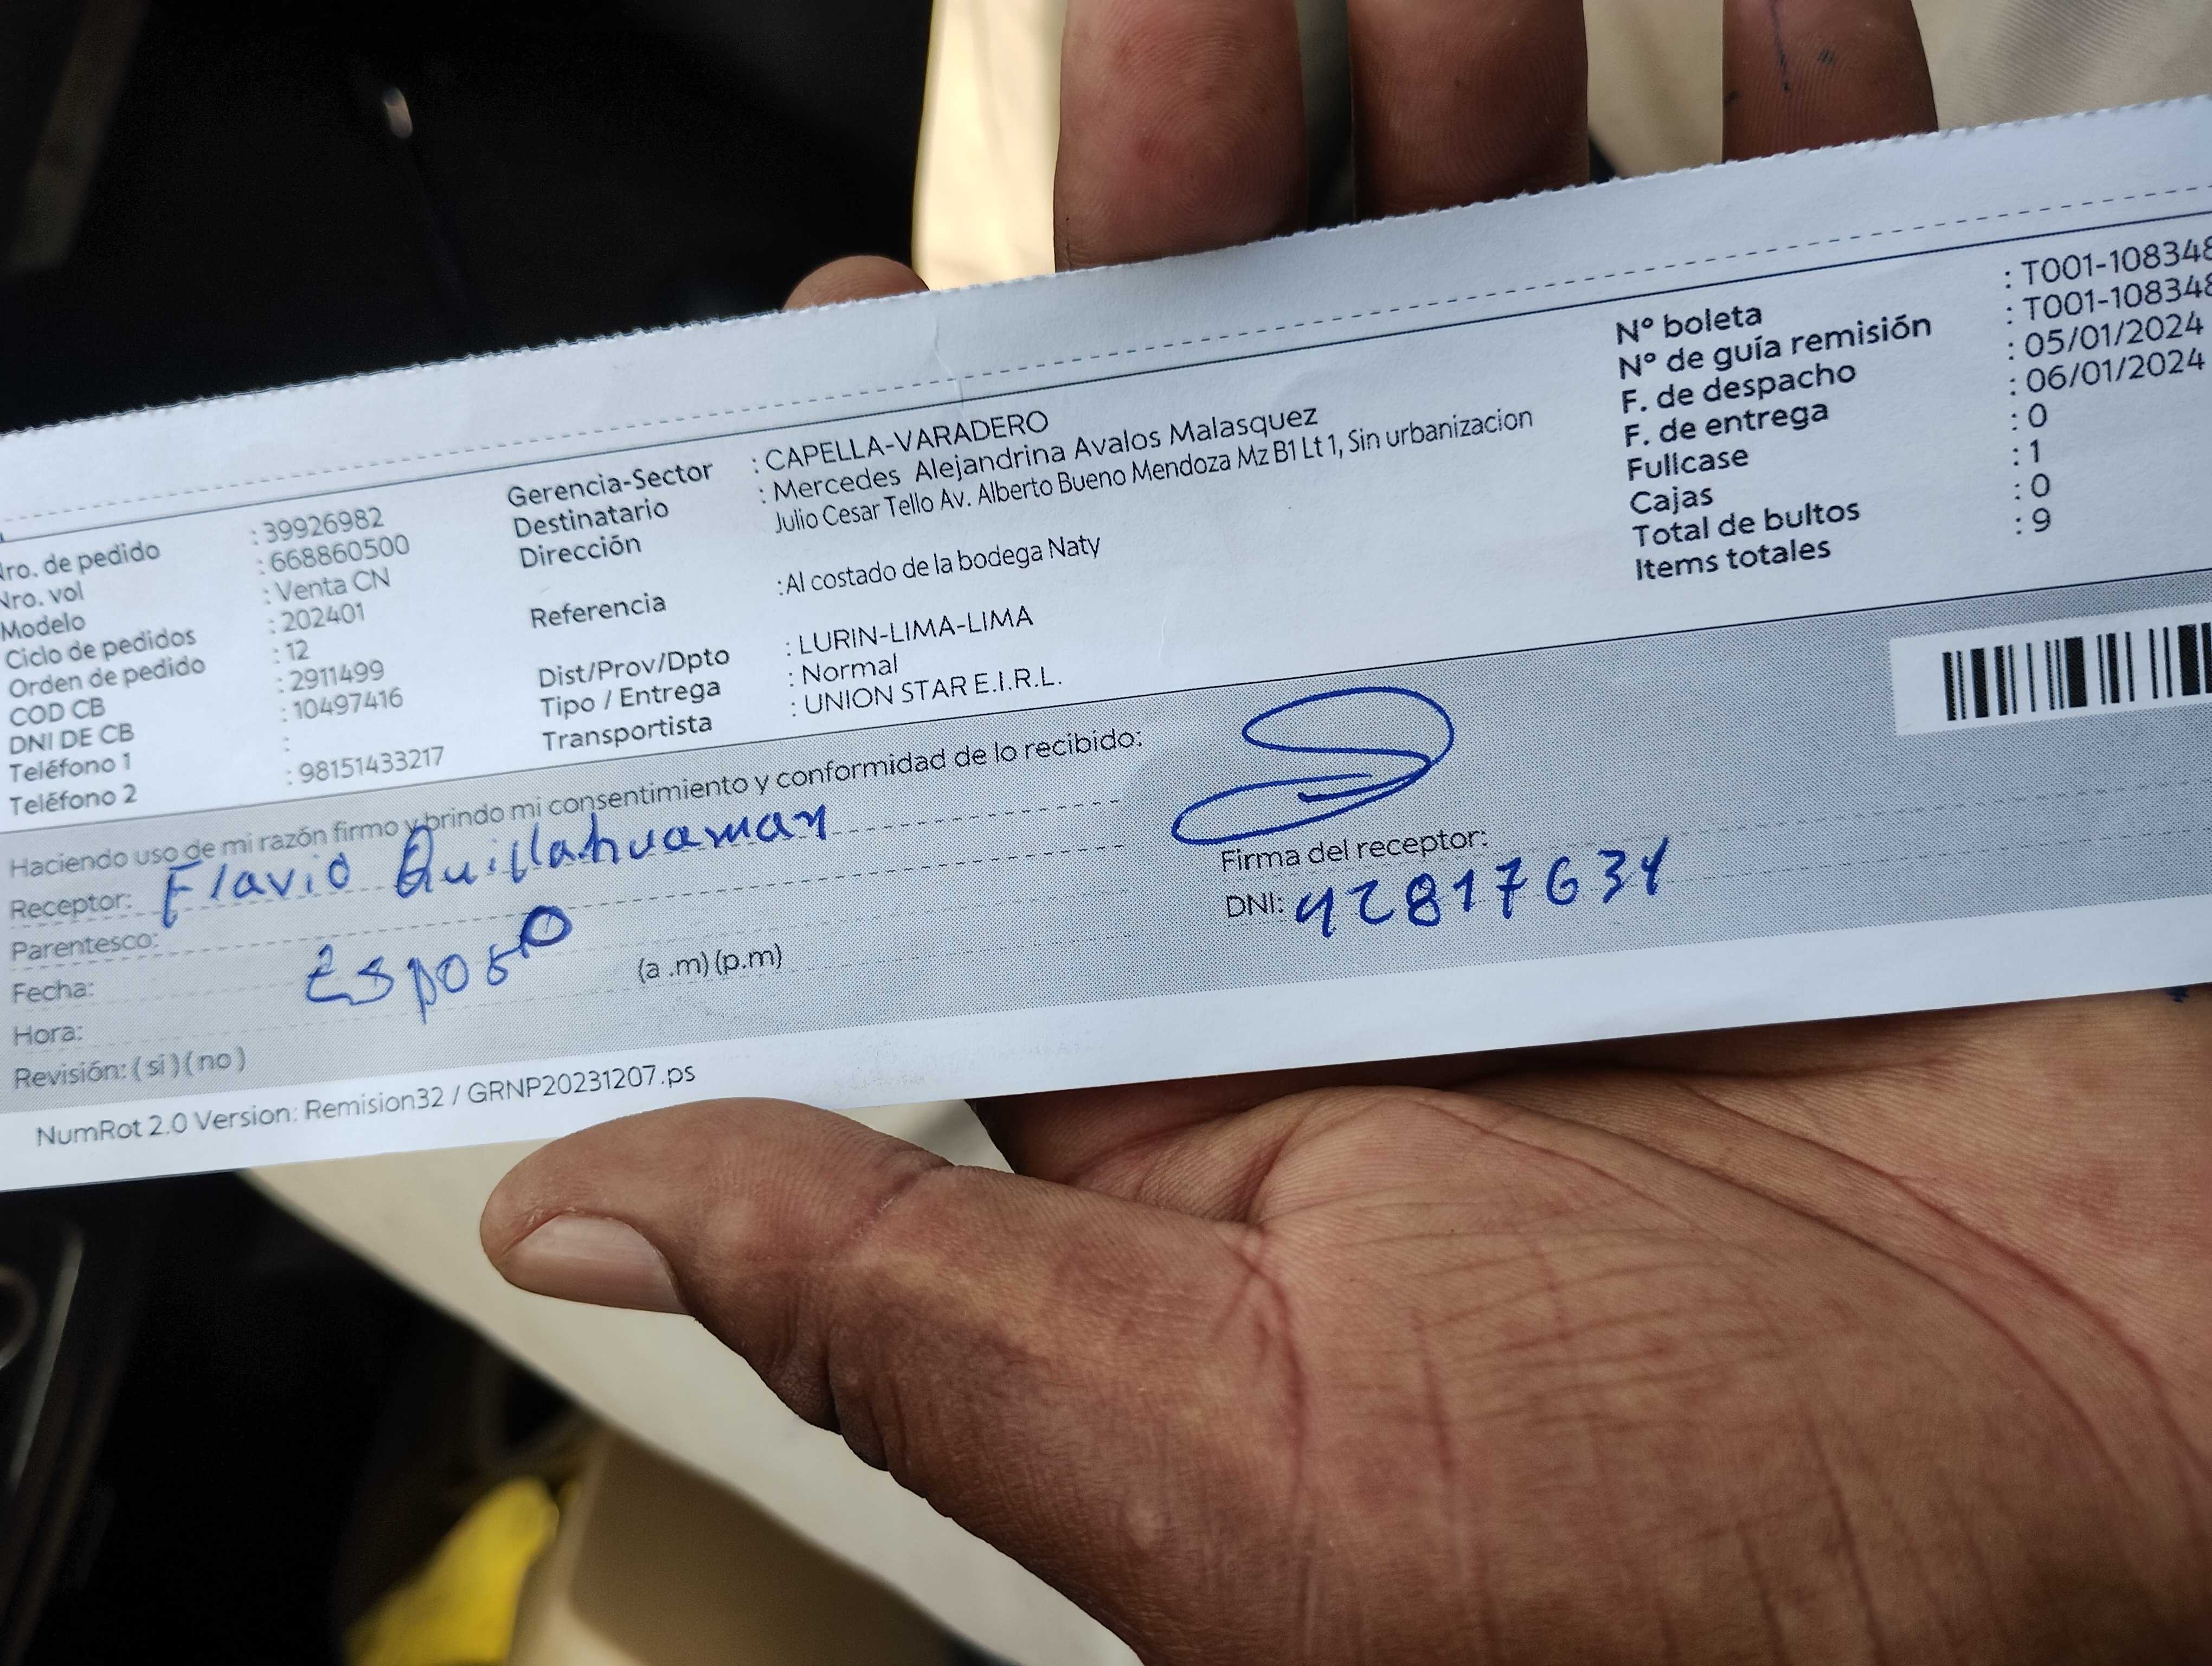 Nro. de pedido : 39926982
Nro. vol : 668860500
Modelo : Venta CN
Ciclo de pedidos : 202401
Orden de pedido : 12
COD CB : 2911499
DNI DE CB : 10497416
Teléfono 1 :
Teléfono 2 : 98151433217
Gerencia-Sector : CAPELLA-VARADERO
Destinatario : Mercedes Alejandrina Avalos Malasquez
Dirección : Julio Cesar Tello Av. Alberto Bueno Mendoza Mz B1 Lt 1, Sin urbanizacion
Referencia : Al costado de la bodega Naty
Dist/Prov/Dpto : LURIN-LIMA-LIMA
Tipo / Entrega : Normal
Transportista : UNION STAR E.I.R.L.
Nº boleta : T001-108348
Nº de guía remisión : T001-108348
F. de despacho : 05/01/2024
F. de entrega : 06/01/2024
Fullcase : 0
Cajas : 1
Total de bultos : 0
Items totales : 9
Haciendo uso de mi razón firmo y brindo mi consentimiento y conformidad de lo recibido:
Receptor: Flavio Quillahuaman
Parentesco: Esposo
Fecha:
Hora: (a .m) (p.m)
Revisión: ( si ) ( no )
Firma del receptor:
DNI: 42817634
NumRot 2.0 Version: Remision32 / GRNP20231207.ps